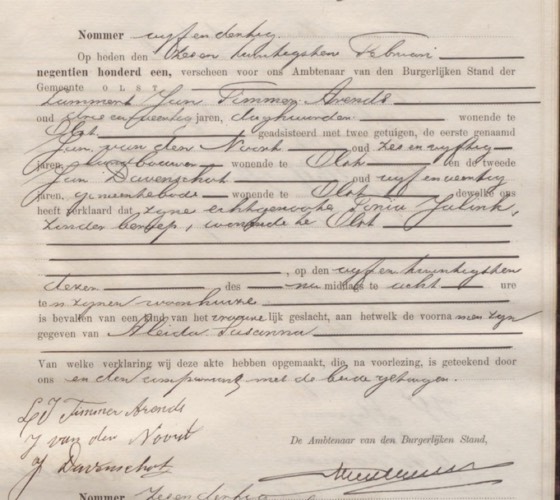 Nommer vijf en dertig
Op heden den zes en twintigsten Februari
negentien honderd een, verscheen voor ons Ambtenaar van den Burgerlijken Stand der
Gemeente OLST
Lammert Jan Timmer Arends
oud drie en veertig jaren, daghuurder wonende te
Olst geadsisteerd met twee getuigen, de eerste genaamd
Jan van den Noort oud zes en vijftig
jaren, landbouwer wonende te Olst en de tweede
Jan Davenschot oud vijf en veertig
jaren, gemeentebode wonende te Olst dewelke ons
heeft verklaard dat zijne echtgenoote Jonia Jalink,
zonder beroep, wonende te Olst
, op den vijf en twintigsten
dezer des na middags te acht ure
te n zijnen woonhuize
is bevallen van een kind van het vrouwelijk geslacht, aan hetwelk de voornamen zijn
gegeven van Aleida Susanna
Van welke verklaring wij deze akte hebben opgemaakt, die, na voorlezing, is geteekend door
ons en den comparant met de beide getuigen.
L J Timmer Arends
J van den Noort
J Davenschot
De Ambtenaar van den Burgerlijken Stand,
Nommer Zes en dertig